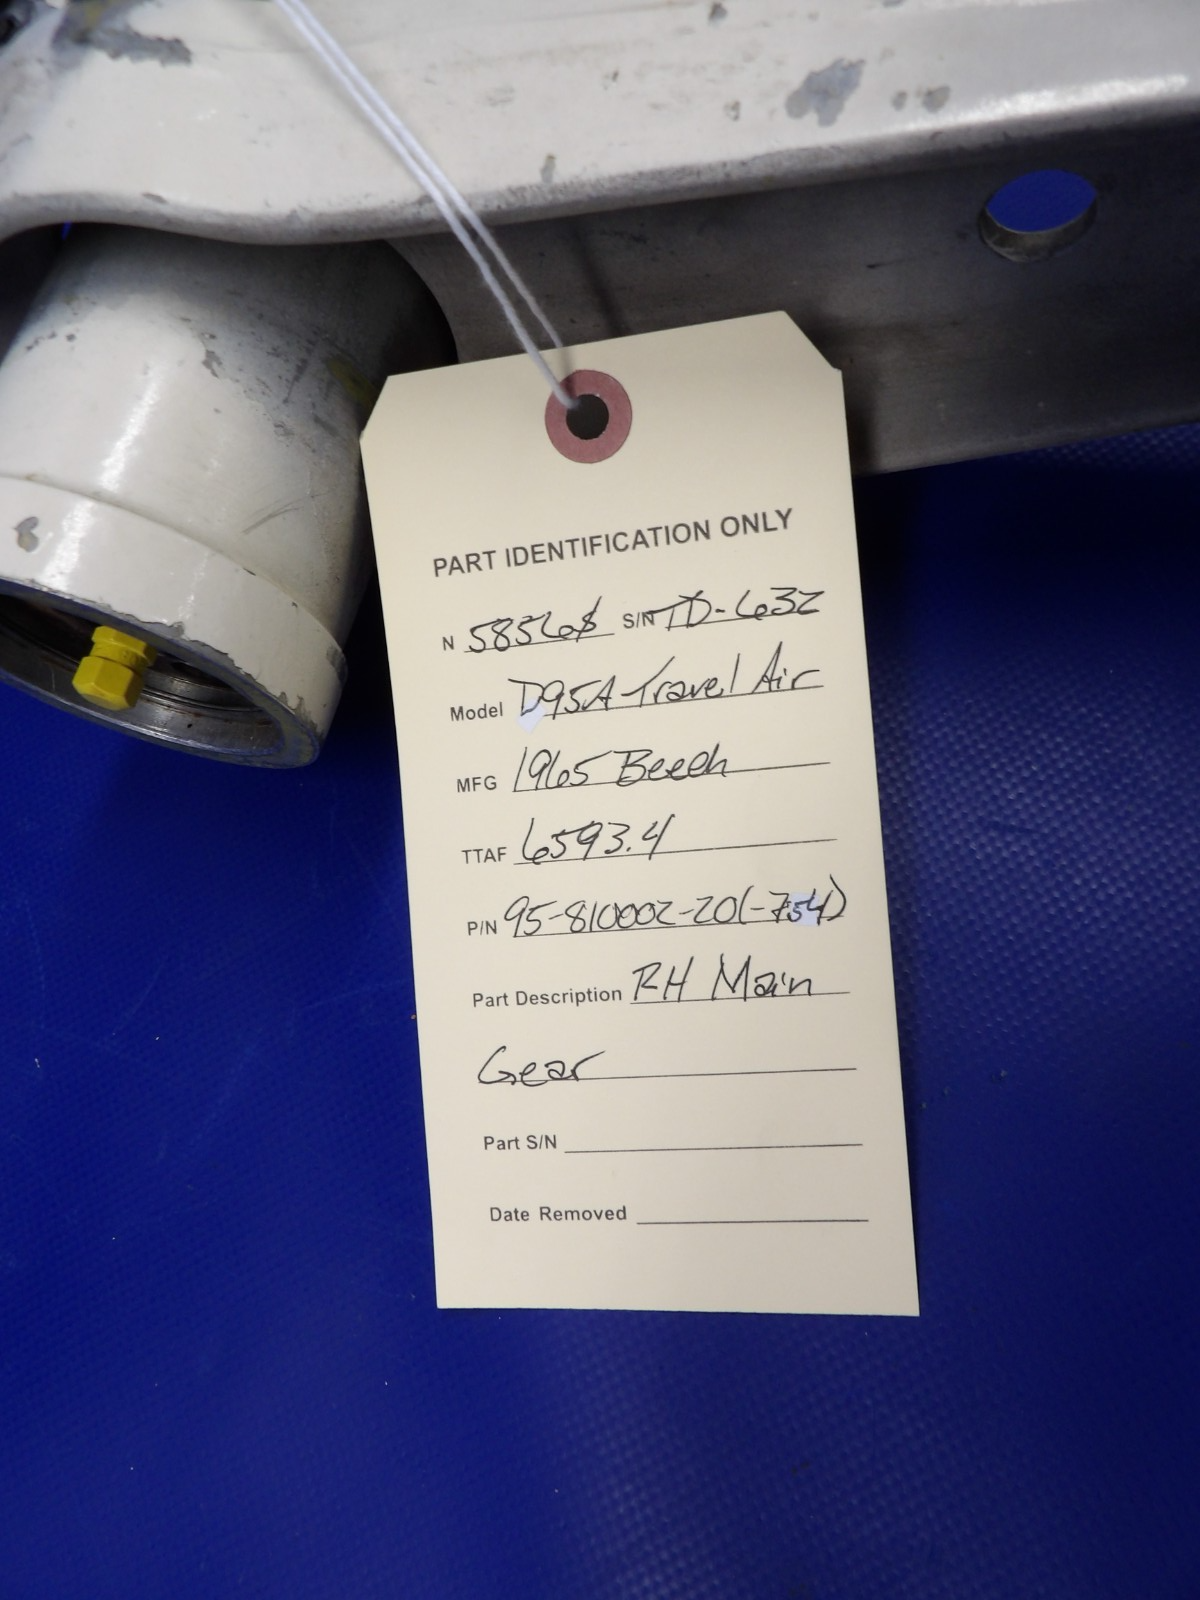 PART IDENTIFICATION ONLY
N 5856S S/N TD-632
Model D95A Travel Air
MFG 1965 Beech
TTAF 6593.4
P/N 95-810002-20(-754)
Part Description RH Main
Gear
Part S/N
Date Removed